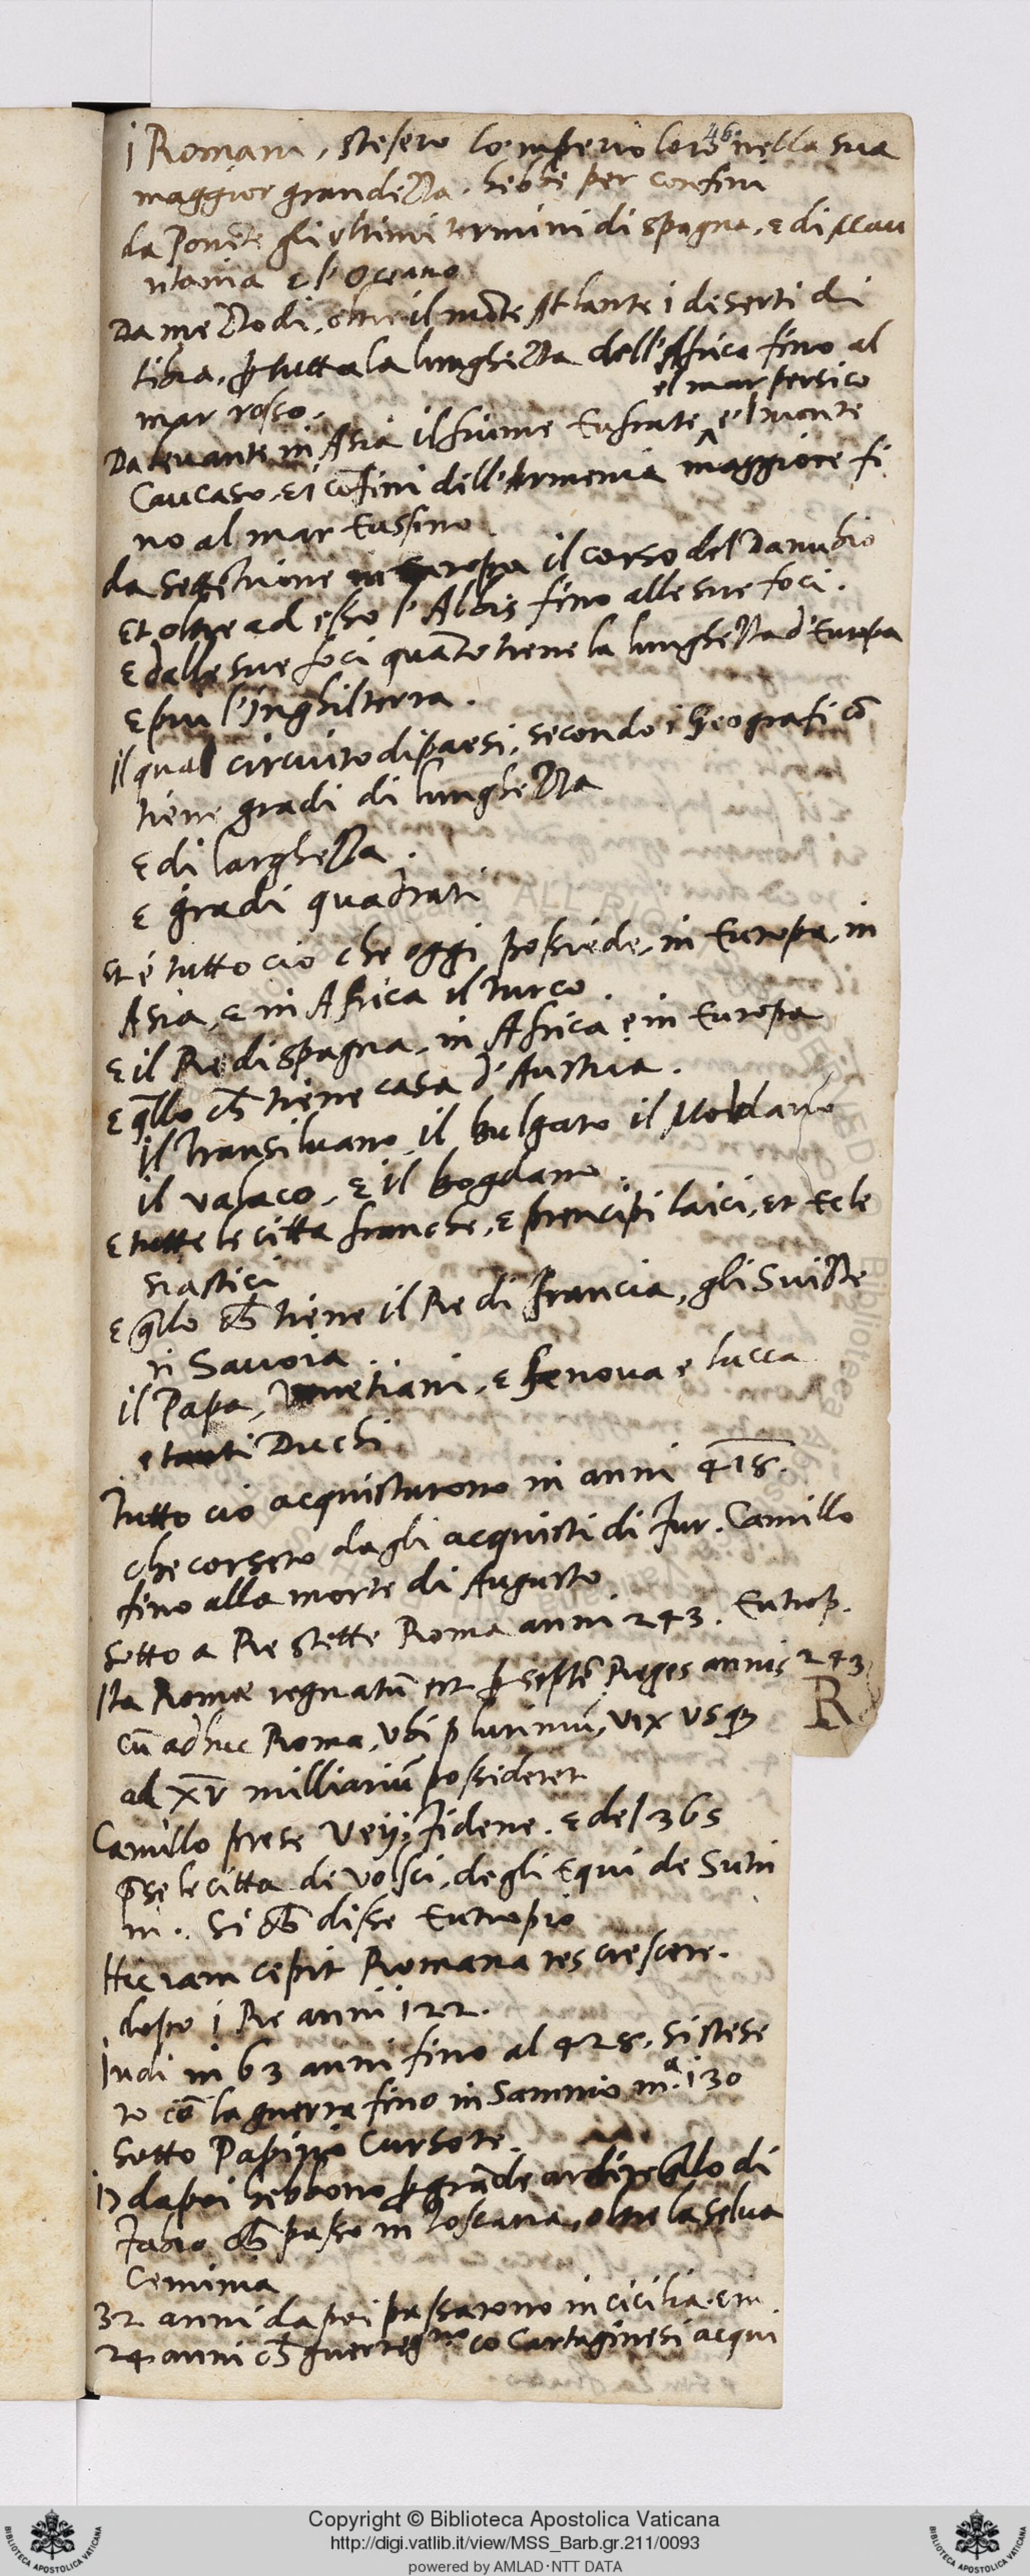 46.
i Romani, stesero lo'mperio loro nella sua
maggior grandezza. hebbe per confini
da Ponēte gli ultimi termini di spagna, e di Mau
ritania e l'Oceano
Da mezzodi, oltre il mōte Atlante i deserti di
libia, ꝑ tutta la lunghezza dell'Africa fino al
mar rosso.
el mar persico
Da levante in Asia il fiume Eufrate, e'l monte
Caucaso, et i cōfini dell'Armenia maggiore fi
no al mar Eussino
da settētrione in Europa il corso del Danubio
Et oltre ad esso l'Albis fino alle sue foci.
e dalle sue foci quanto tiene la lunghezza d'Europa
e piu l'Inghilterra.
Il qual circuito di paesi, secondo i Geografi cō
tiene gradi di lunghezza
e di larghezza.
e gradi quadrati
et é tutto cio che oggi possiede, in Europa, in
Asia, e in Africa il Turco.
e il Re di spagna, in Africa e in Europa
e q̄llo ch̄ tiene casa d'Austria.
il Transiluano, il bulgaro il Moldavo
il valaco, e il bogdano.
e tutte le citta franche, e prencipi laici, et Ecle
siastici
e q̄llo ch̄ tiene il Re di Francia, gli Svizze
ri Savoia.
il Papa, Venetiani, e Genova e lucca
e tanti Duchi
Tutto cio acquistarono in anni 418.
che corsero dagli acquisti di Fur. Camillo
fino alla morte di Augusto.
Sotto a Re stette Roma anni 243. Eutrop.
Ita Romæ regnatū est ꝑ septē Reges annis 243
cū adhuc Roma, ubi plurimū, vix usqȝ
R
ad XV milliariū possideret
Camillo prese Veij, Fidene. e del 365
p̄se le citta de Volsci, degli Equi de Sutri
ni. Si ch̄ disse Eutropio
Hic iam cepit Romana res crescere.
dopo i Re anni 122.
Indi in 63 anni fino al 428. si stese
ro cō la guerra fino in Sannio mᵃ. 130
sotto Papirio Cursore.
17 dapoi hebbono ꝑ grāde ardire q̄llo di
Fabio ch̄ passo in Toscana, oltre la selva
Ceminia
32 anni dapoi passarono in cicilia. e in
24 anni ch̄ guerregⁿᵒ co Cartaginesi acqui
Copyright © Biblioteca Apostolica Vaticana
http://digi.vatlib.it/view/MSS_Barb.gr.211/0093
powered by AMLAD·NTT DATA